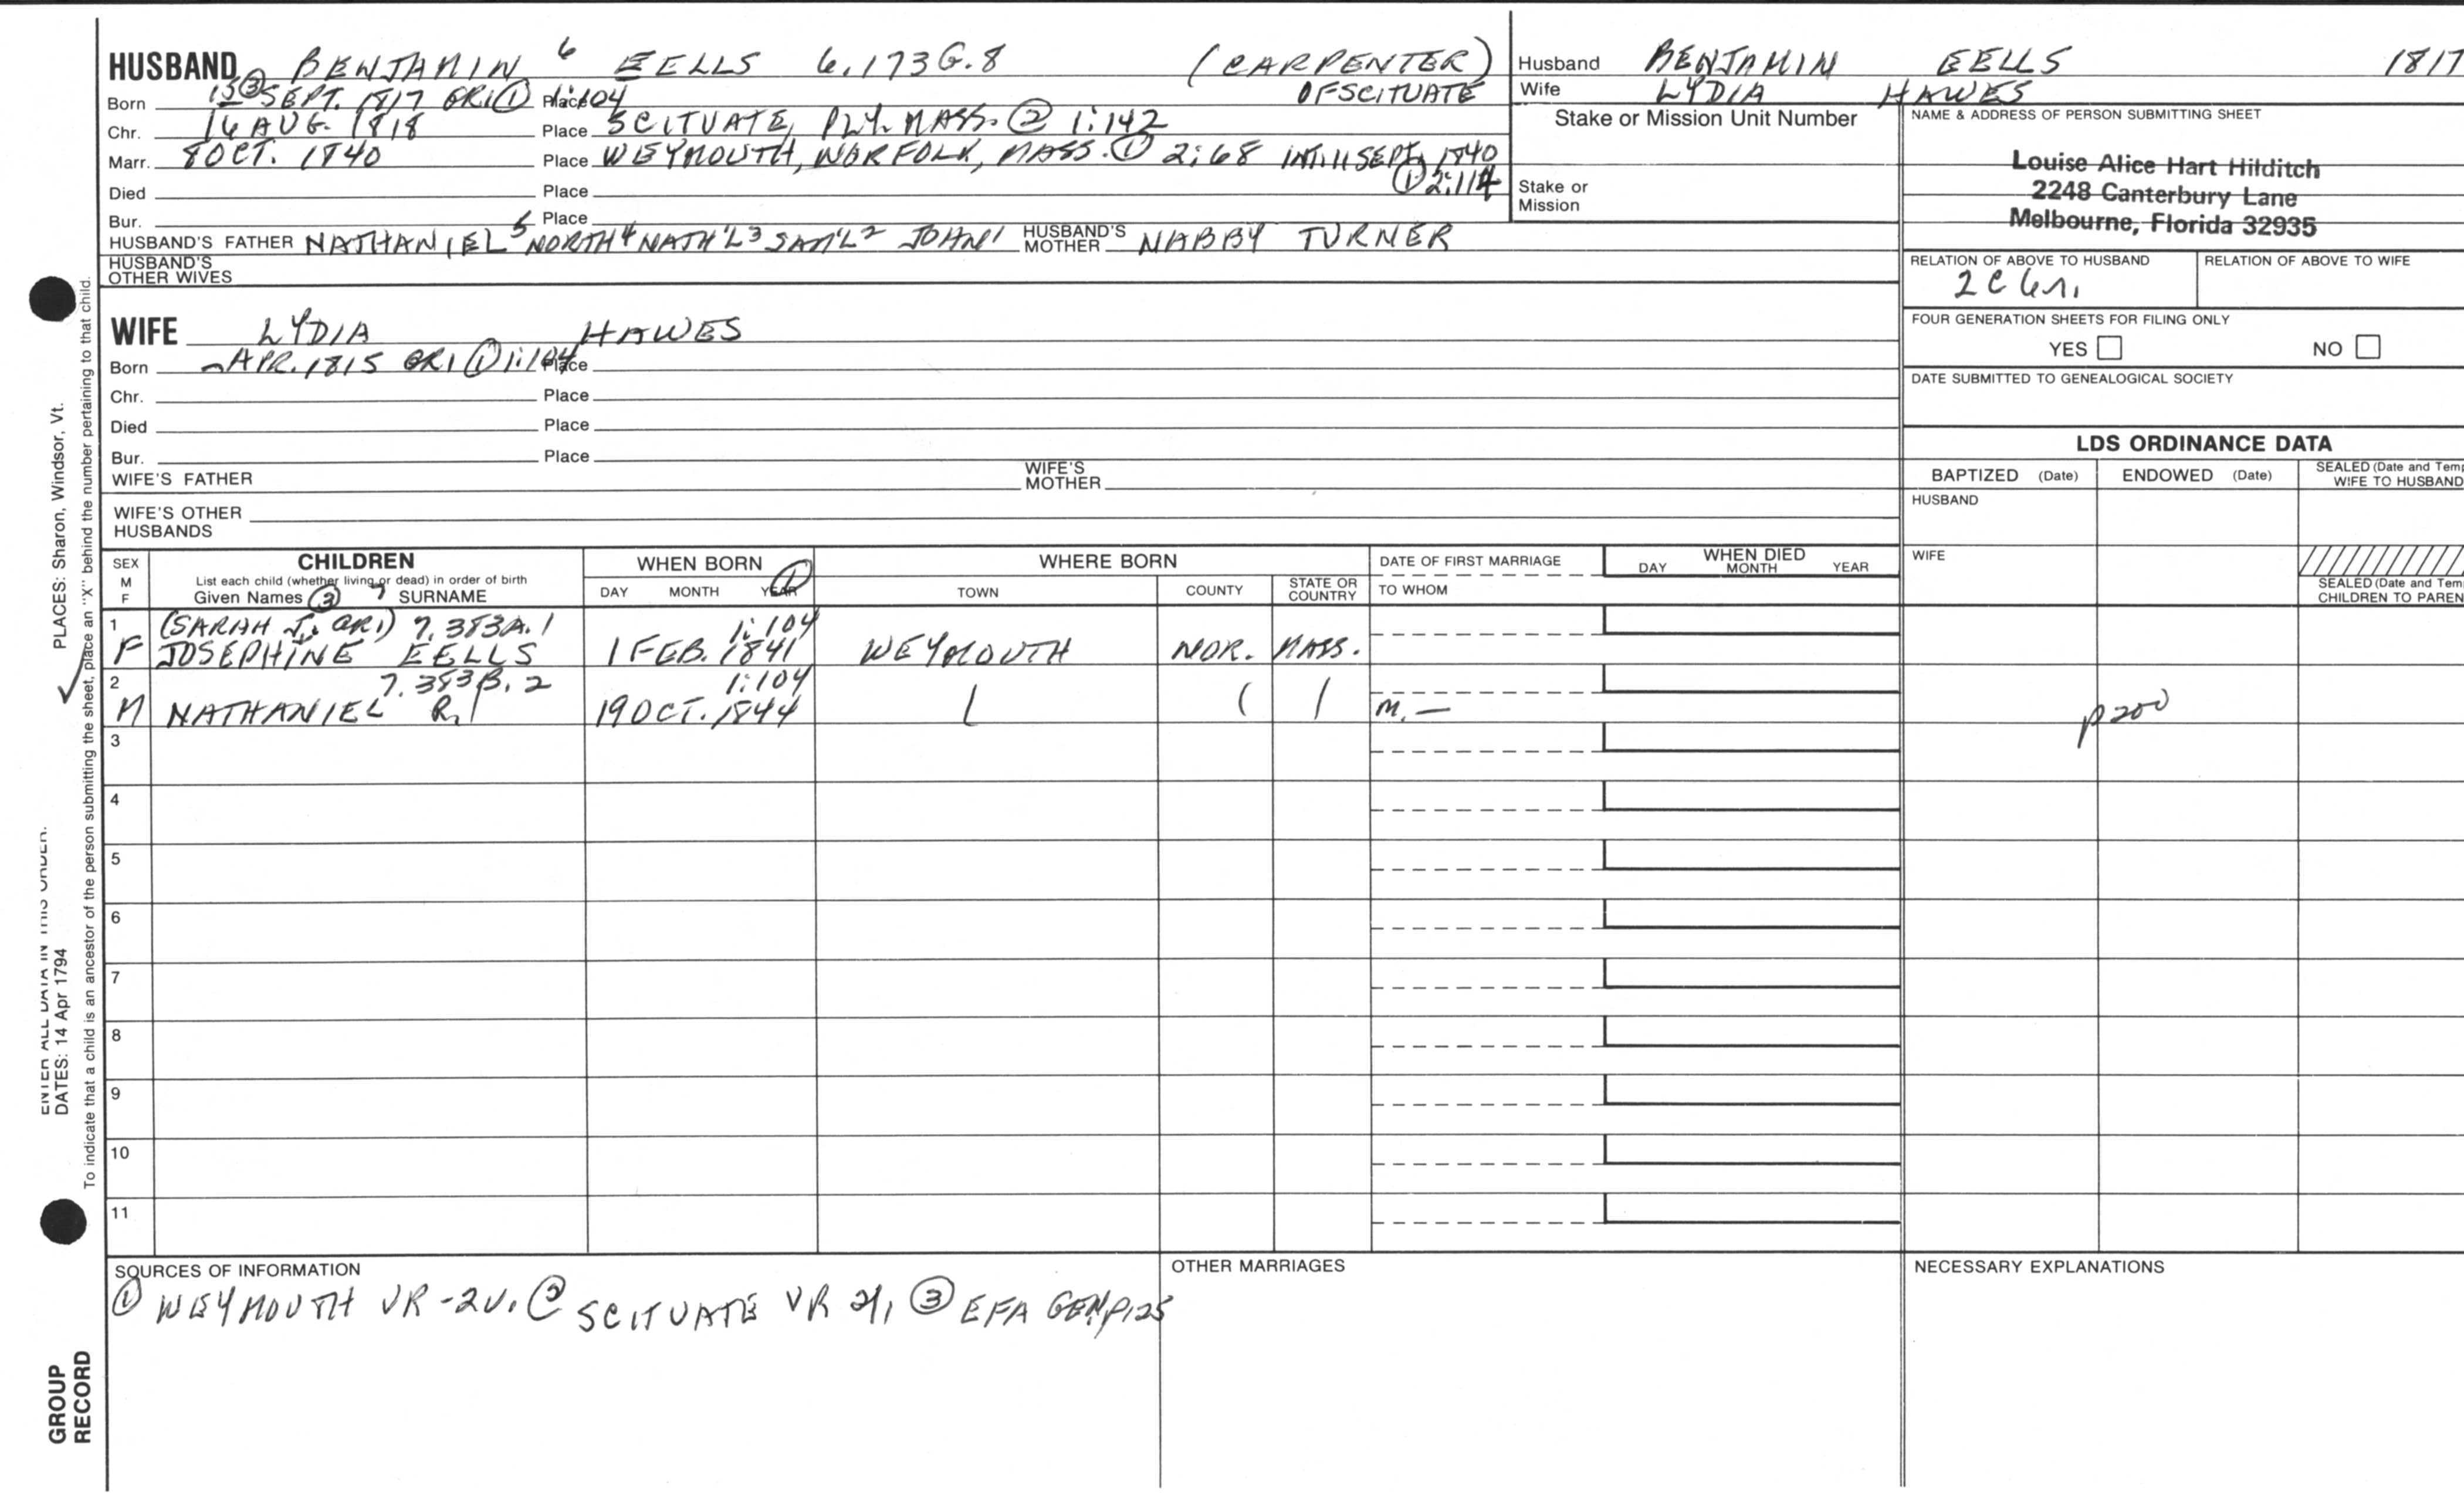 HUSBAND BENJAMIN 6 EELLS 6.173G.8 (CARPENTER) OF SCITUATE
Born 15 ③ SEPT. 1817 GR1 ① 1:104 Place
Chr. 16 AUG. 1818 Place SCITUATE, PLY. MASS. ② 1:142
Marr. 8 OCT. 1840 Place WEYMOUTH, NORFOLK, MASS. ① 2:68 INT. 11 SEPT. 1840 ① 2:114
Died Place
Bur. Place
HUSBAND'S FATHER NATHANIEL 5 NORTH 4 NATH'L 3 SAM'L 2 JOHN 1 HUSBAND'S MOTHER NABBY TURNER
HUSBAND'S OTHER WIVES
WIFE LYDIA HAWES
Born - APR. 1815 GR1 ① 1:104 Place
Chr. Place
Died Place
Bur. Place
WIFE'S FATHER WIFE'S MOTHER
WIFE'S OTHER HUSBANDS
Husband BENJAMIN EELLS 1817
Wife LYDIA HAWES
Stake or Mission Unit Number
Stake or Mission
NAME & ADDRESS OF PERSON SUBMITTING SHEET
Louise Alice Hart Hilditch
2248 Canterbury Lane
Melbourne, Florida 32935
RELATION OF ABOVE TO HUSBAND RELATION OF ABOVE TO WIFE
2C 6r.
FOUR GENERATION SHEETS FOR FILING ONLY
YES NO
DATE SUBMITTED TO GENEALOGICAL SOCIETY
LDS ORDINANCE DATA
BAPTIZED (Date) ENDOWED (Date) SEALED (Date and Temp
WIFE TO HUSBAND
HUSBAND
WIFE
SEALED (Date and Temp
CHILDREN TO PAREN
SEX M F
CHILDREN
List each child (whether living or dead) in order of birth
Given Names ③ 7 SURNAME
WHEN BORN ①
DAY MONTH YEAR
WHERE BORN
TOWN COUNTY STATE OR COUNTRY
DATE OF FIRST MARRIAGE
TO WHOM
WHEN DIED
DAY MONTH YEAR
1 (SARAH J., GR1) 7.383A.1 1:104
F JOSEPHINE EELLS 1 FEB. 1841 WEYMOUTH NOR. MASS.
2 7.383B.2 1:104
M NATHANIEL R. 19 OCT. 1844 M. — p200
3
4
5
6
7
8
9
10
11
SOURCES OF INFORMATION
① WEYMOUTH VR-2V. ② SCITUATE VR 2V, ③ EFA GEN p125
OTHER MARRIAGES
NECESSARY EXPLANATIONS
ENTER ALL DATA IN THIS ORDER:
DATES: 14 Apr 1794
PLACES: Sharon, Windsor, Vt.
To indicate that a child is an ancestor of the person submitting the sheet, place an "X" behind the number pertaining to that child.
GROUP
RECORD